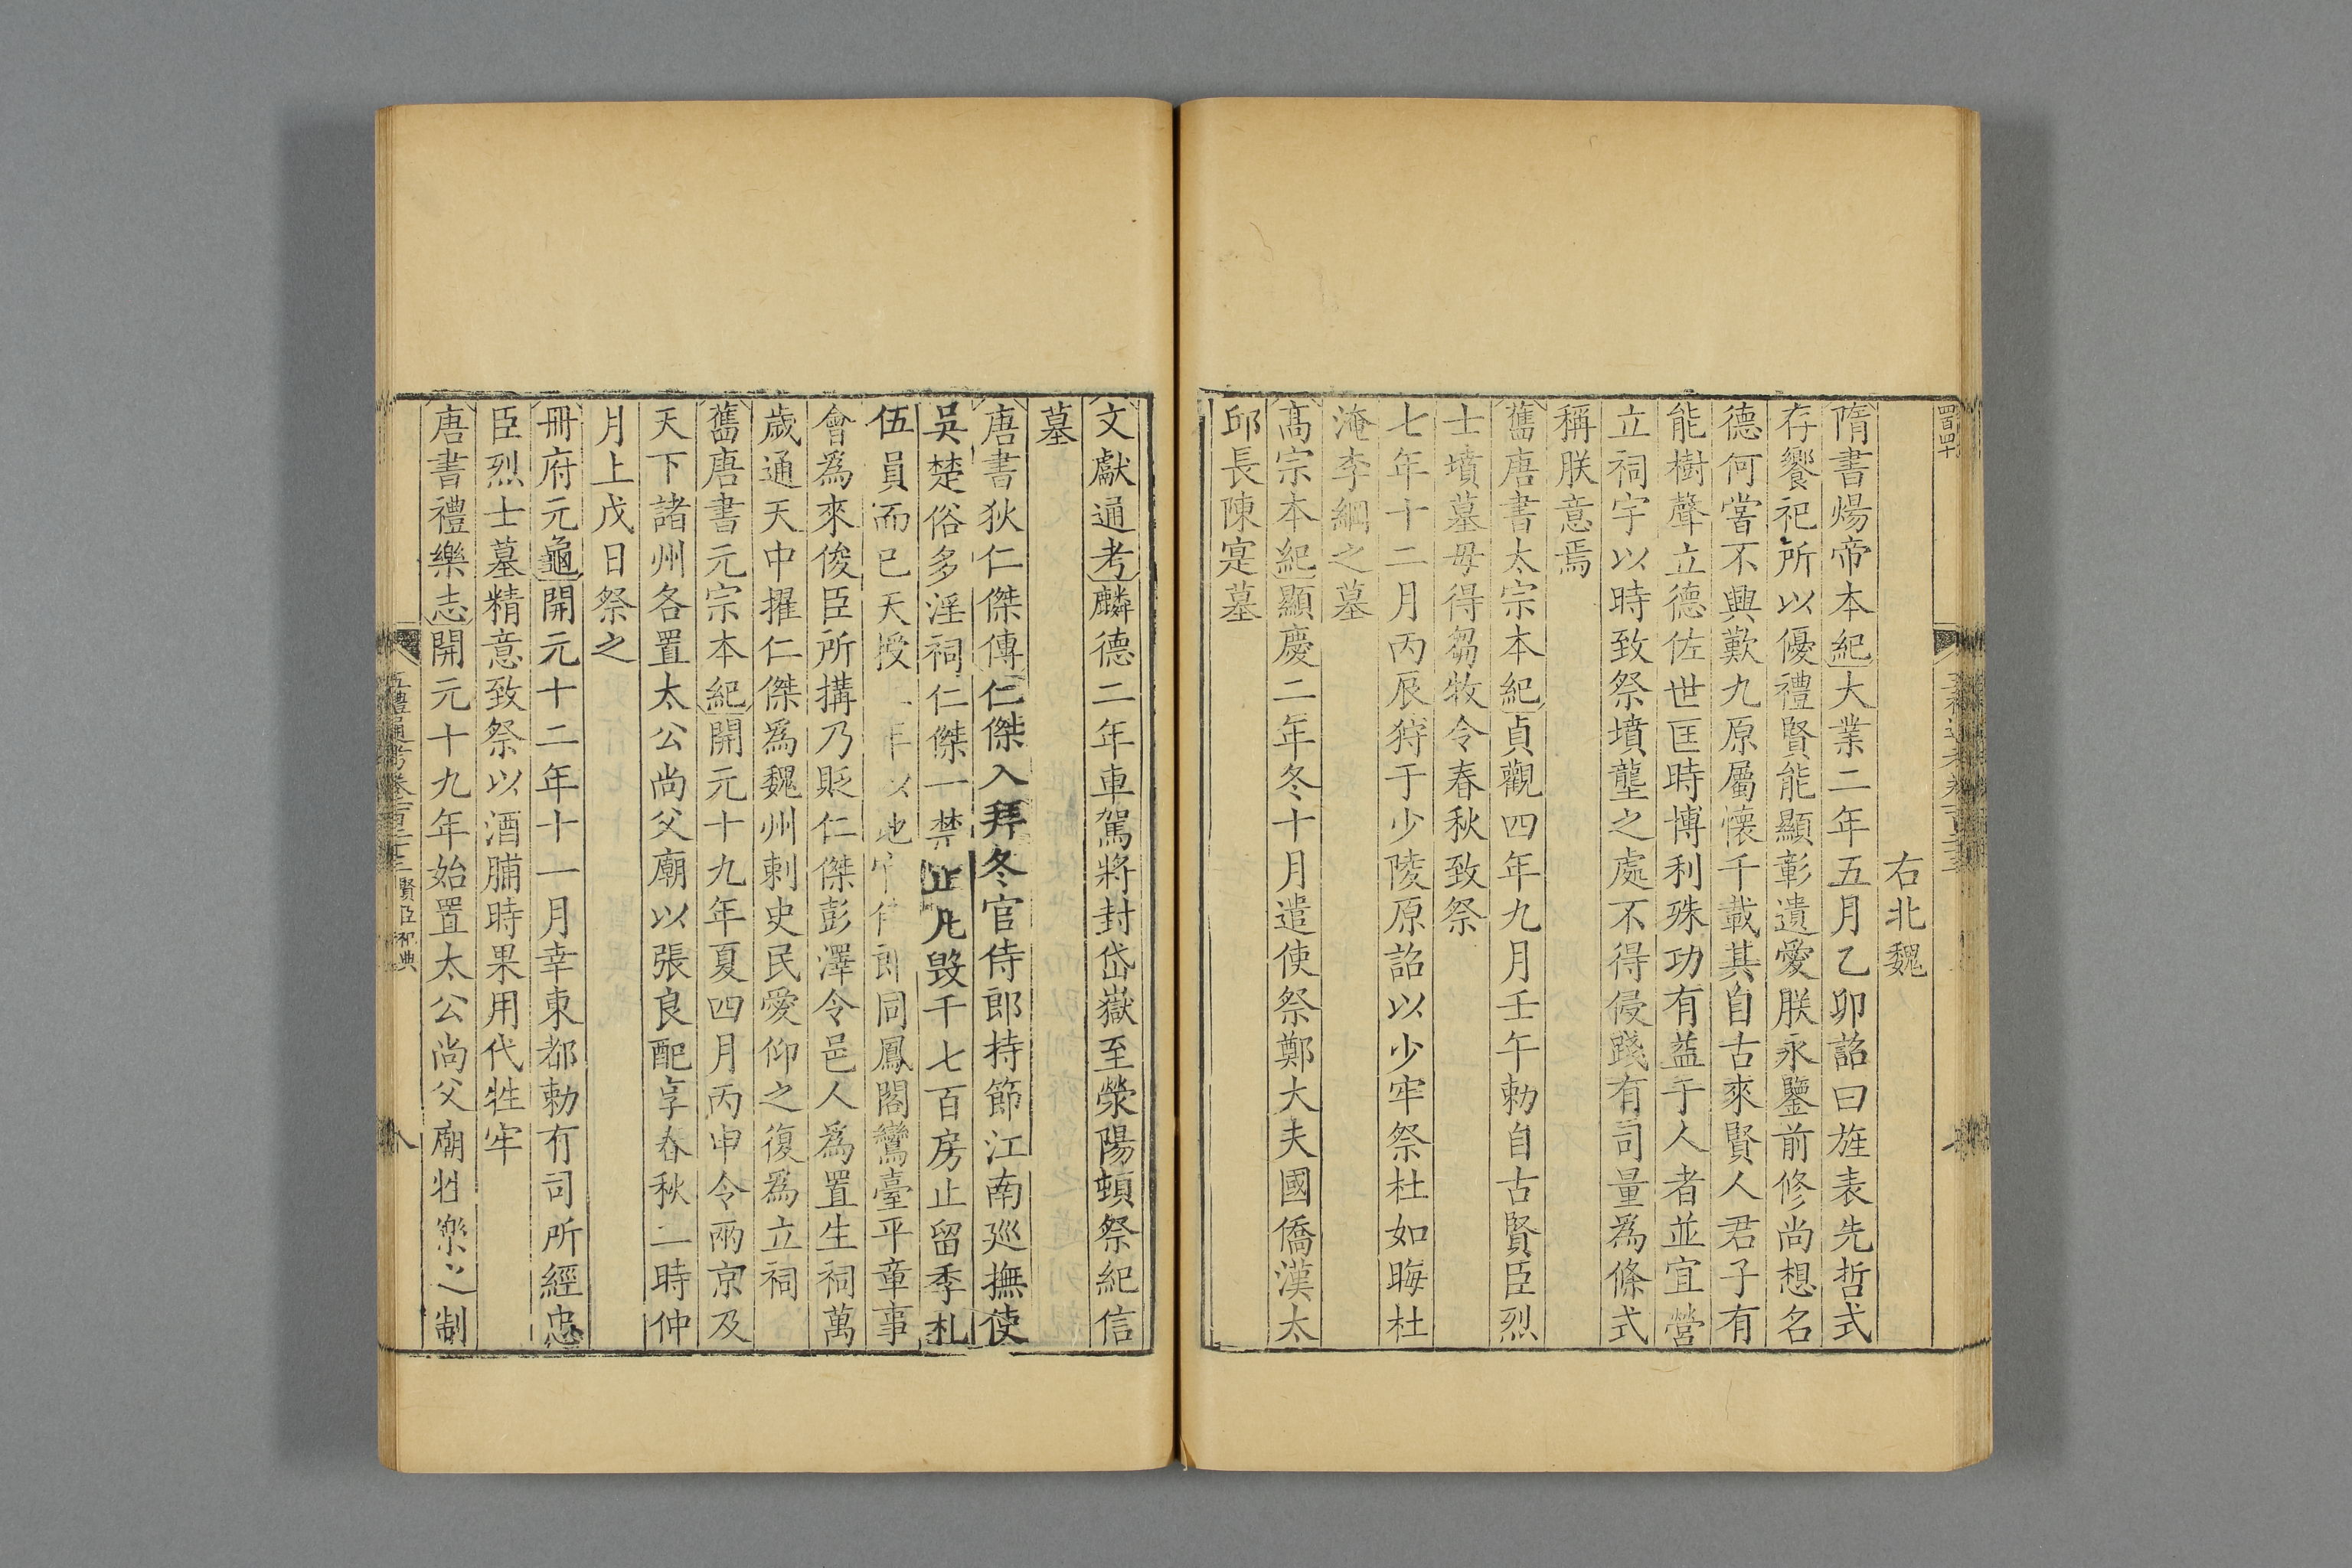 右北魏
隋書煬帝本紀大業二年五月乙卯詔曰旌表先哲式
存饗祀所以優禮賢能顯彰遺愛朕永鑒前修尚想名
德何嘗不興歎九原屬懷千載其自古來賢人君子有
能樹聲立德佐世匡時博利殊功有益于人者並宜營
立祠宇以時致祭墳壟之處不得侵踐有司量爲條式
稱朕意焉
舊唐書太宗本紀貞觀四年九月壬午勅自古賢臣烈
士墳墓毋得芻牧令春秋致祭
七年十二月丙辰狩于少陵原詔以少牢祭杜如晦杜
淹李綱之墓
高宗本紀顯慶二年冬十月遣使祭鄭大夫國僑漢太
邱長陳寔墓
文獻通考麟德二年車駕將封岱嶽至滎陽頓祭紀信
墓
唐書狄仁傑傳仁傑入拜冬官侍郎持節江南巡撫使
吳楚俗多淫祠仁傑一禁止凡毁千七百房止留季札
伍員而已天授 年以地官侍郎同鳳閣鸞臺平章事
會爲來俊臣所搆乃貶仁傑彭澤令邑人爲置生祠萬
歲通天中擢仁傑爲魏州刺史民愛仰之復爲立祠
舊唐書元宗本紀開元十九年夏四月丙申令兩京及
天下諸州各置太公尚父廟以張良配享春秋二時仲
月上戊日祭之
冊府元龜開元十二年十一月幸東都勅有司所經忠
臣烈士墓精意致祭以酒脯時果用代牲牢
唐書禮樂志開元十九年始置太公尚父廟牲樂之制
五禮通考卷一百二十三 賢臣祀典 八